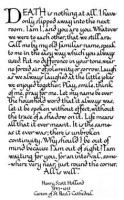 DEATH is nothing at all. I have
only slipped away into the next
room. I am I, and you are you. Whatever
we were to each other, that we still are.
Call me by my old familiar name, speak
to me in the easy way which you always
used. Put no difference in your tone, wear
no forced air of solemnity or sorrow. Laugh
as we always laughed at the little jokes
we enjoyed together. Play, smile, think
of me, pray for me. Let my name be ever
the household word that it always was,
let it be spoken without effect, without
the trace of a shadow on it. Life means
all that it ever meant. It is the same
as it ever was; there is unbroken
continuity. Why should I be out of
mind because I am out of sight? I am
waiting for you, for an interval, some-
where very near, just round the corner.
All is well.
Henry Scott Holland
1847-1918
Canon of St. Paul's Cathedral